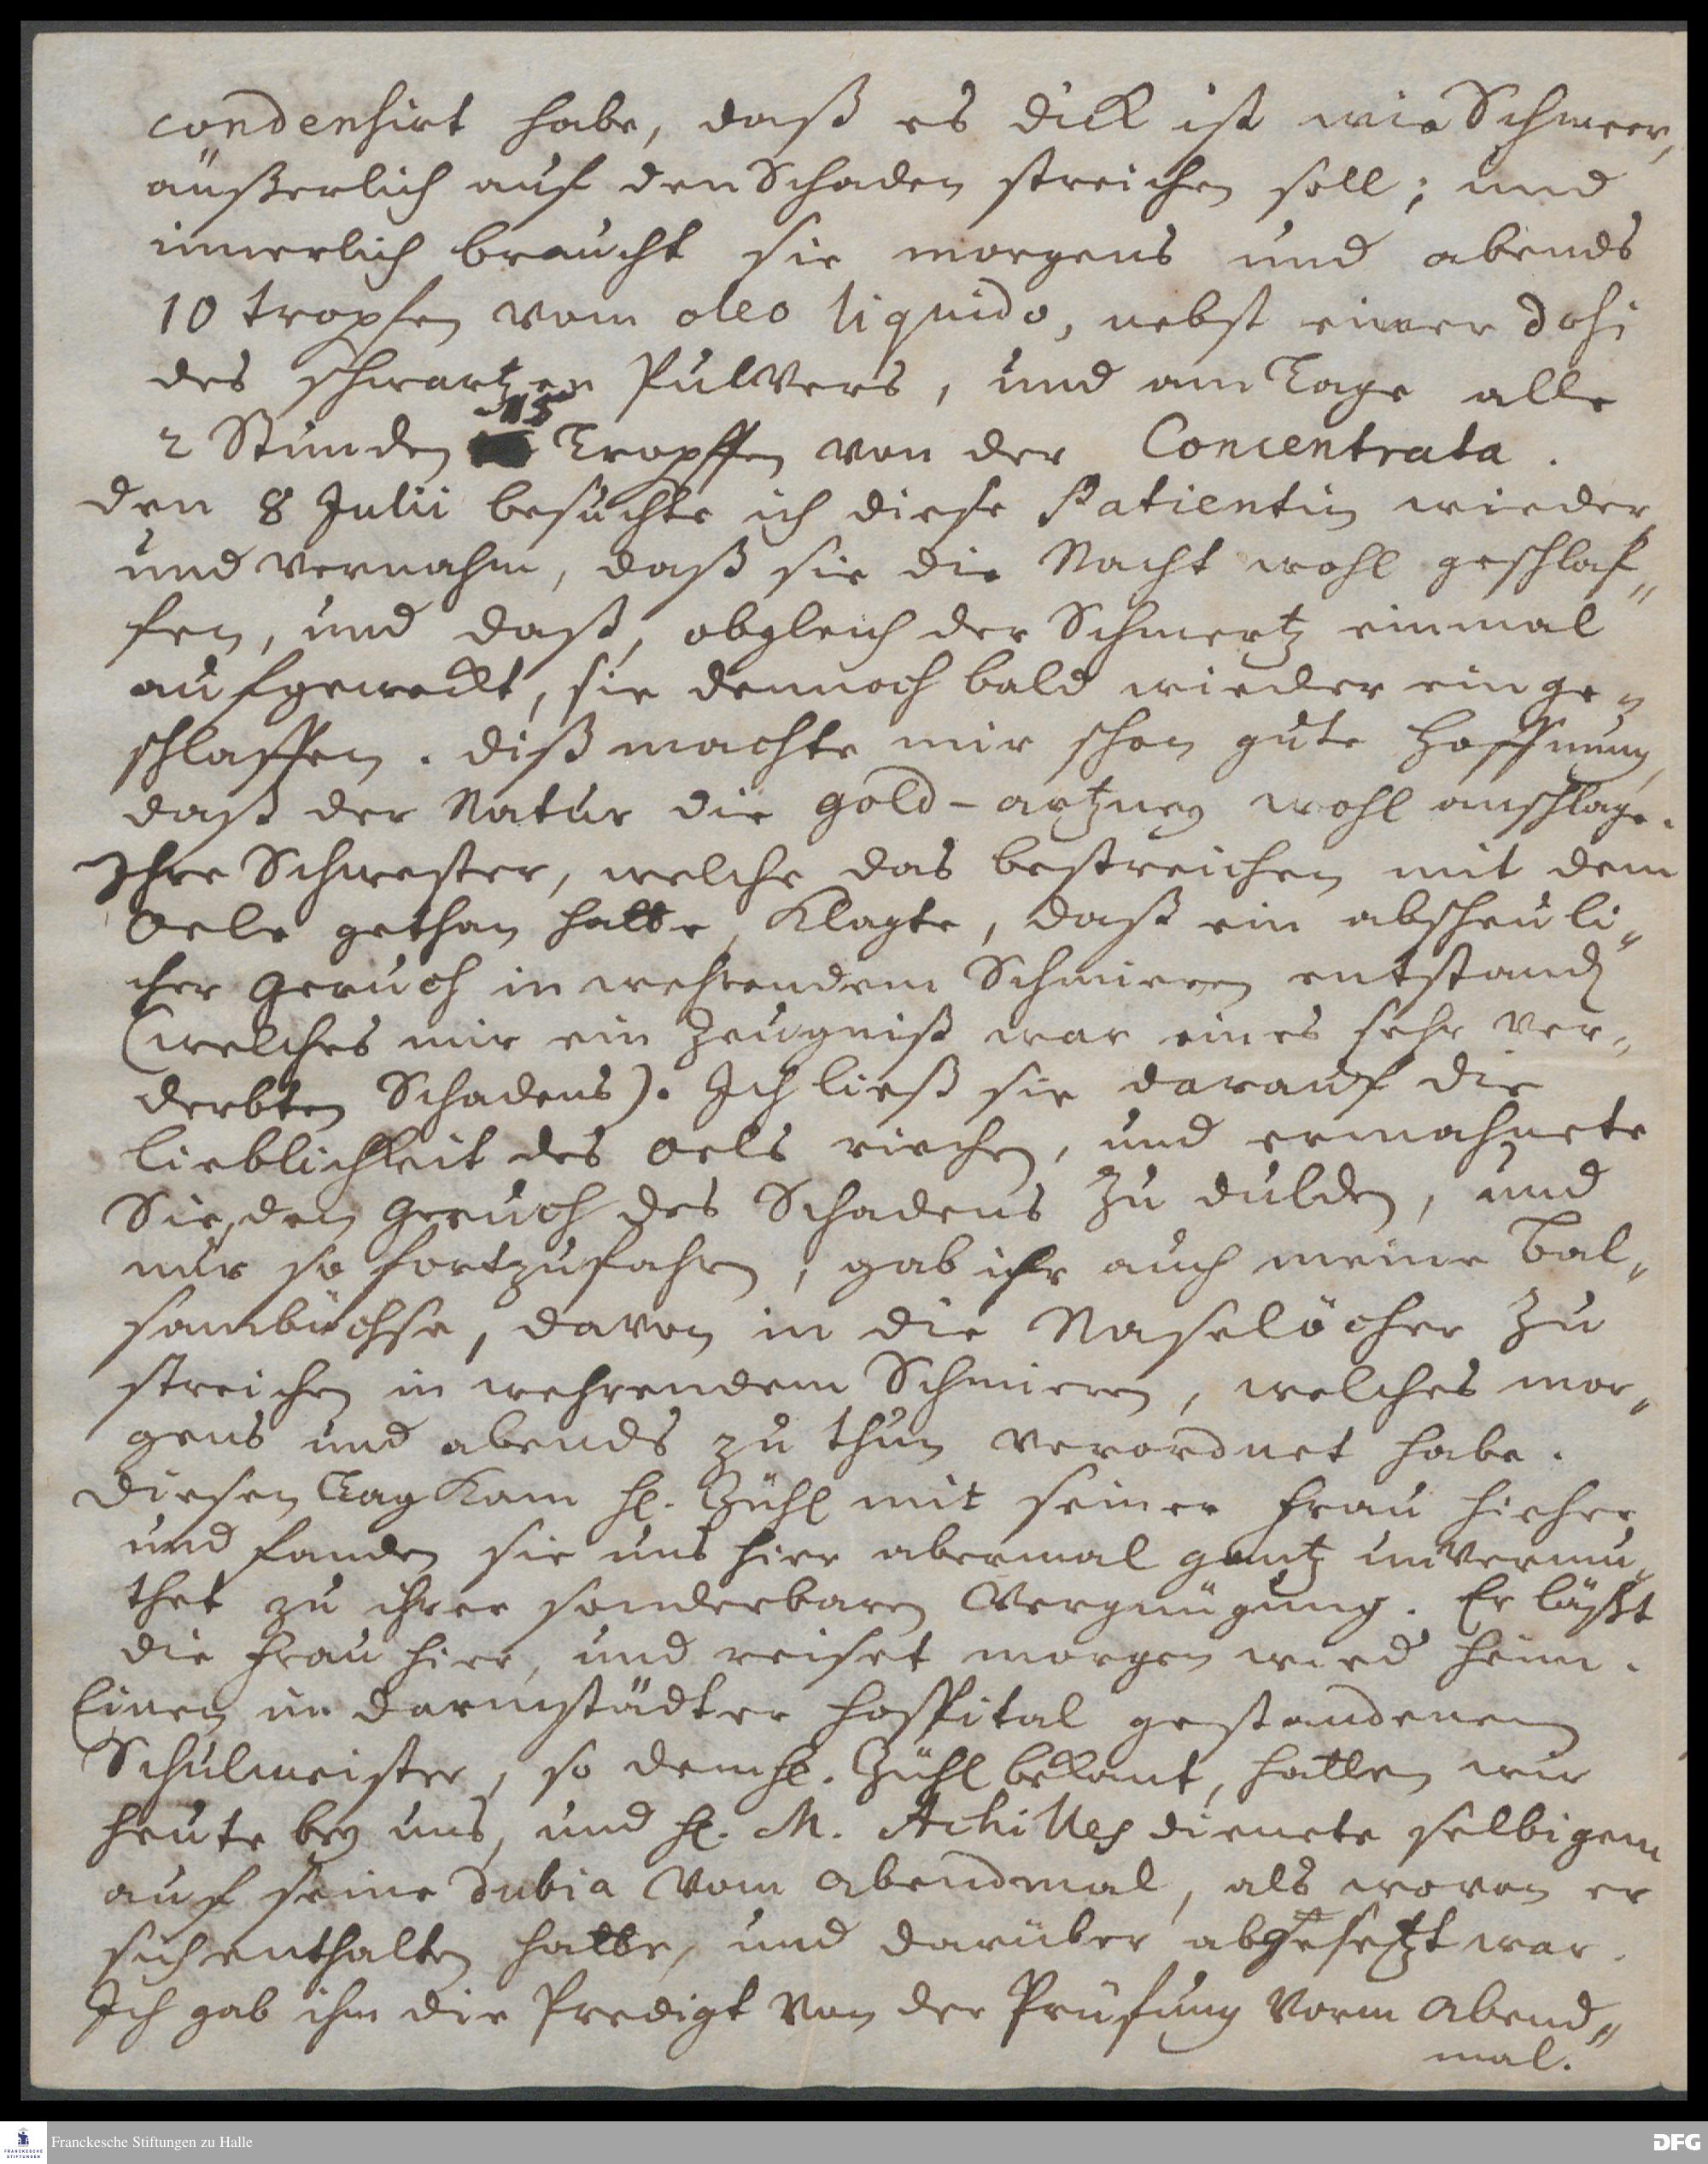 condensirt habe, daß es dick ist wie Schmeer,
äußerlich auf den Schaden streichen soll; und
innerlich braucht sie morgens und abends
10 tropfen vom oleo liquido, nebst einer dosi
des schwartzen Pulvers, und am Tage alle
2 Stunden 15 Tropffen von der Concentrata.
den 8 Julii besuchte ich diese Patientin wieder,
und vernahm, daß sie die Nacht wohl geschlaf„
fen, und daß, obgleich der Schmertz einmal
aufgeweckt, sie dennoch bald wieder einge„
schlaffen. diß machte mir schon gute Hoffnung,
daß der Natur die gold-artzney wohl anschlage.
Ihre Schwester, welche das bestreichen mit dem
Oele gethan hatte, Klagte, daß ein abscheuli„
cher Geruch in wehrendem Schmieren entstand
(welches mir ein Zeugniß war eines sehr ver„
derbten Schadens). Ich ließ sie darauf die
lieblichkeit des Oels riechen, und ermahnete
Sie, den Geruch des Schadens zu dulden, und
nur so fortzufahren, gab ihr auch meine Bal„
sambüchse, davon in die Naselöcher zu
streichen in wehrendem Schmieren, welches mor„
gens und abends zu thun verordnet habe.
diesen Tag Kam H. Zühl mit seiner Frau hieher,
und fanden sie uns hier abermal gantz unvermu„
thet zu ihrer sonderbaren Vergnügung. Er läßt
die Frau hier, und reiset morgen wied heim.
Einen im darmstädter Hospital gestandenen
Schulmeister, so dem H. Zühl bekant, hatten wir
heute bey uns, und H. M. Achilles dienete selbigem
auf seine dubia vom Abendmal, als wovon er
sich enthalten hatte, und darüber abgesetzt war.
Ich gab ihm die Predigt von der Prüfung vorm Abend„
mal.
Franckesche Stiftungen zu Halle
DFG